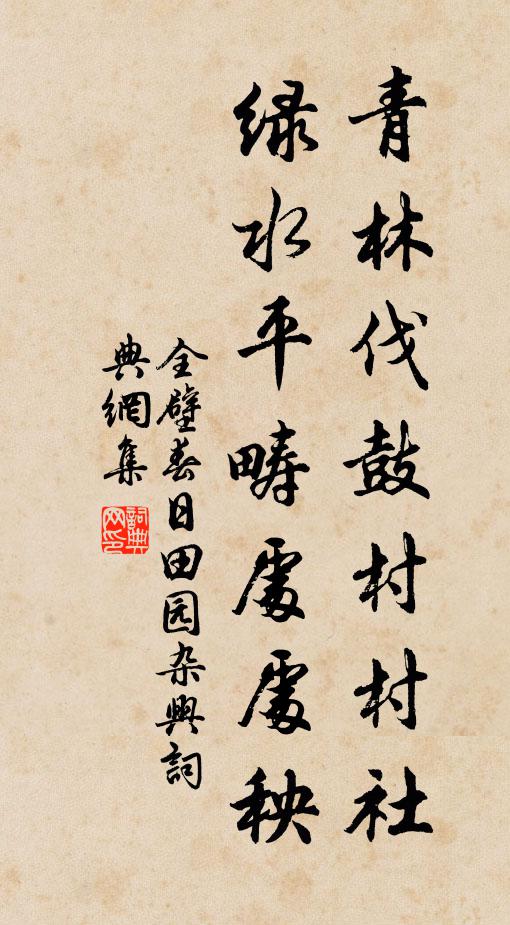 青林伐鼓村村社
绿水平畴處處秧
全璧春日田园杂興詞
典網集
詞典网印